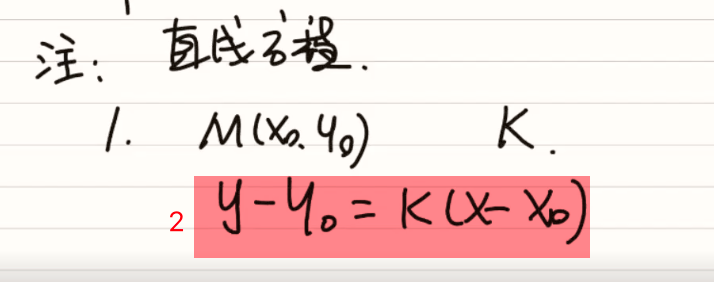 注: 直线方程.
1. M(x₀, y₀) K.
2 y-y₀ = K(x-x₀)